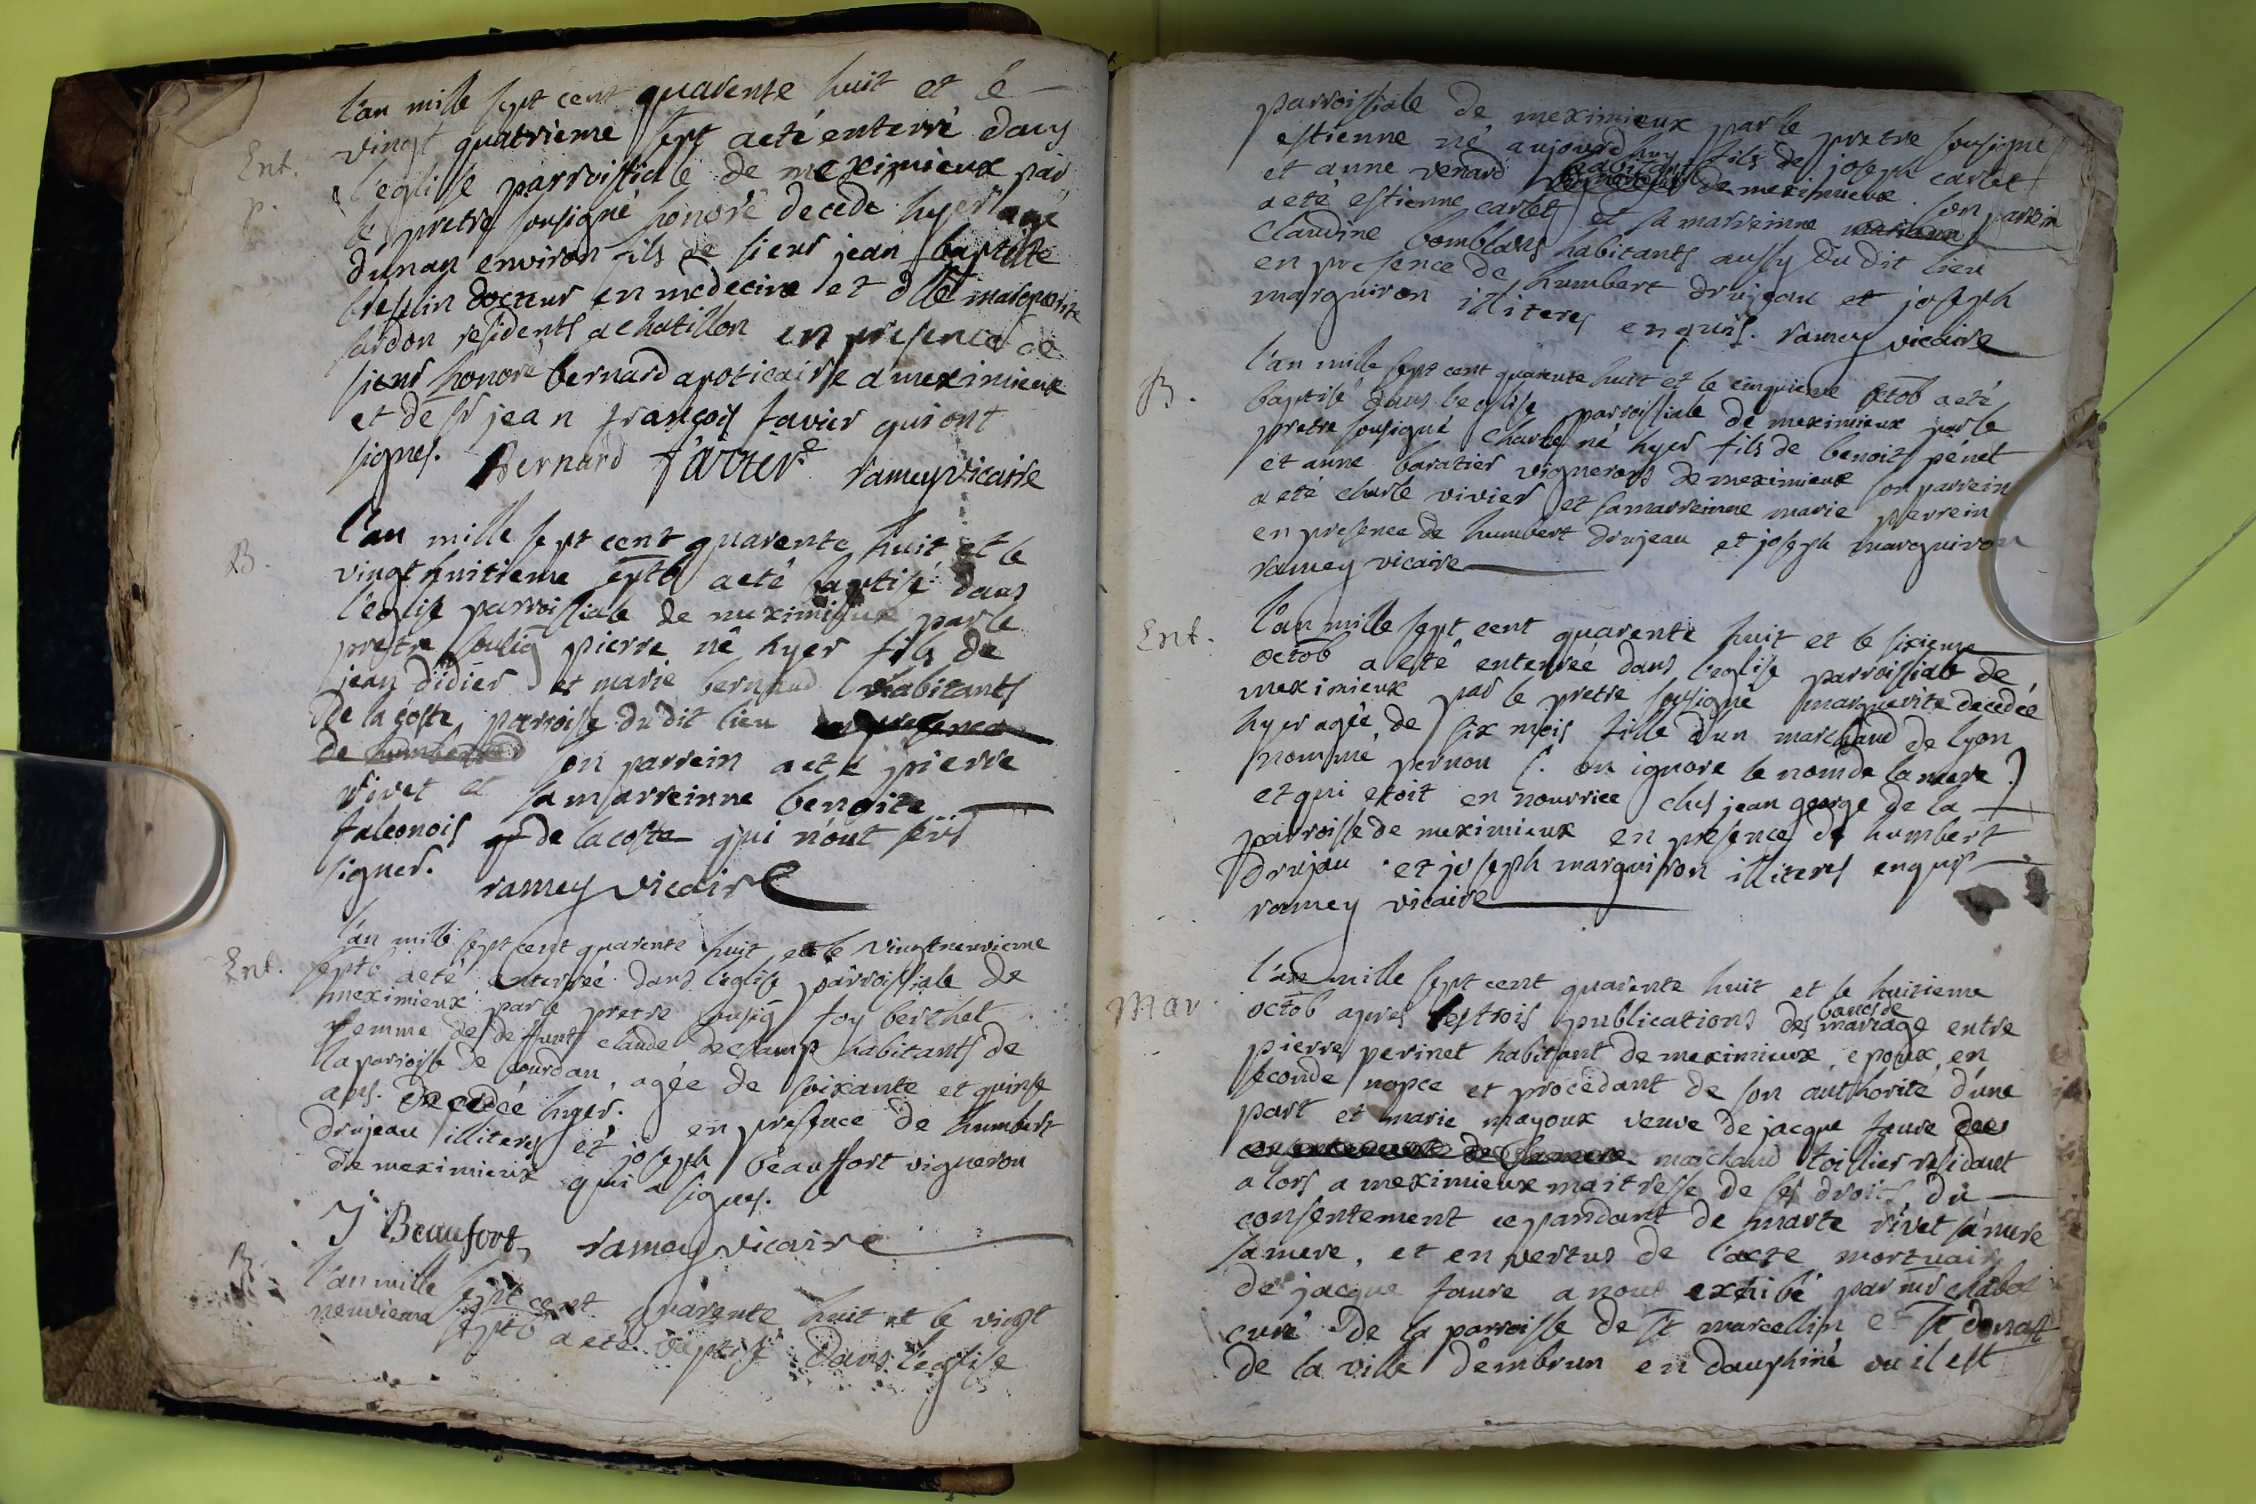 l'an mille sept cent quarente huit et le
Ent. vingt quatrieme sept a eté enterré dans
p. l'eglise parroissiale de meximieux par
le pretre sousigné honoré decedé hyer agé
d'un an environ fils de sieur jean baptiste
docteur en medecine et dlle marguerite
sardon residents a chatillon en presence de
sieur honoré bernard apoticaire a meximieux
et de sr jean françois favier qui ont
signés. Bernard favier ramey vicaire
B. l'an mille sept cent quarente huit et le
vingt huitieme septb a eté baptisé dans
l'eglise parroissiale de meximieux par le
prestre sousig pierre né hyer fils de
jean didier et marie bernard habitants
de la coste parroisse du dit lieu en presence
de humbert son parrein a eté pierre
rivet et sa marreinne benoite
falconois de la coste qui n'ont sçus
signer. ramey vicaire
Ent. l'an mille sept cent quarente huit et le vingtneuvieme
septb a eté enterrée dans l'eglise parroissiale de
meximieux par le pretre sousig foy berthet
femme de deffunt claude dechamp habitants de
la parroisse de bourdan, agée de soixante et quinse
ans. decedée hyer. en presence de humbert
drujeau illiteres et joseph beauffort vigneron
de meximieux qui a signes.
J Beaufort, ramey vicaire
B. l'an mille sept cent quarente huit et le vingt
neuvieme septb a eté baptisé dans l'eglise
parroissiale de meximieux par le pretre sousigné
estienne né aujourd huy fils de joseph carlet
et anne venard habitants de meximieux. son parrein
a eté estienne carlet et sa marreinne
Claudine bomblans habitants aussy du dit lieu
en presence de humbert drujeau et joseph
marguiron illiteres enquis. ramey vicaire
B. l'an mille sept cent quarente huit et le cinquieme octob a eté
baptisé dans l'eglise parroissiale de meximieux par le
pretre sousigné Charle né hyer fils de benoit pénet
et anne baratier vignerons de meximieux son parrein
a eté charle vivier et sa marreinne marie perrein
en presence de humbert drujeau et joseph marguiron
ramey vicaire
Ent. l'an mille sept cent quarente huit et le sixieme
octob a eté enterrée dans l'eglise parroissiale de
meximieux par le pretre sousigné marguerite decedée
hyer agée de six mois fille d'un marchand de lyon
nommé pernon (. on ignore le nom de la mere.)
et qui etoit en nourrice chés jean george de la
parroisse de meximieux en presence de humbert
drujau et joseph marguiron illiteres enquis
ramey vicaire
Mar. l'an mille sept cent quarente huit et le huitieme
octob apres les trois publications des bancs de mariage entre
pierre perinet habitant de meximieux, epoux en
seconde nopce et procedant de son authorité d'une
part et marie mayoux veuve de jacque faure
consentement de sa mere marchand toillier residant
alors a meximieux maitresse de ses droits, du
consentement cepandant de marte rivet sa mere
sa mere, et en vertus de l'acte mortuaire
de jacque faure a nous exhibé par mr chabot
curé de la parroisse de st marcellin et st donat
de la ville d'embrun en dauphiné ou il est